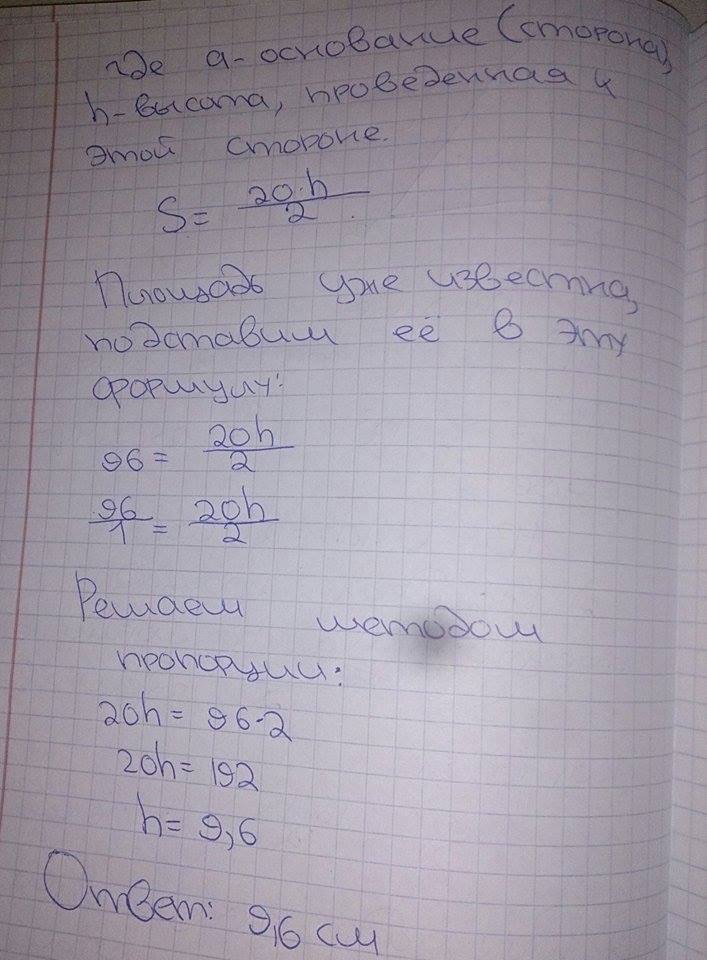 где а-основание (сторона),
h-высота, проведенная к
этой стороне.
S = 20·h / 2
Площадь уже известна,
подставим её в эту
формулу:
96 = 20h / 2
96 / 1 = 20h / 2
Решаем методом
пропорции:
20h = 96·2
20h = 192
h = 9,6
Ответ: 9,6 см